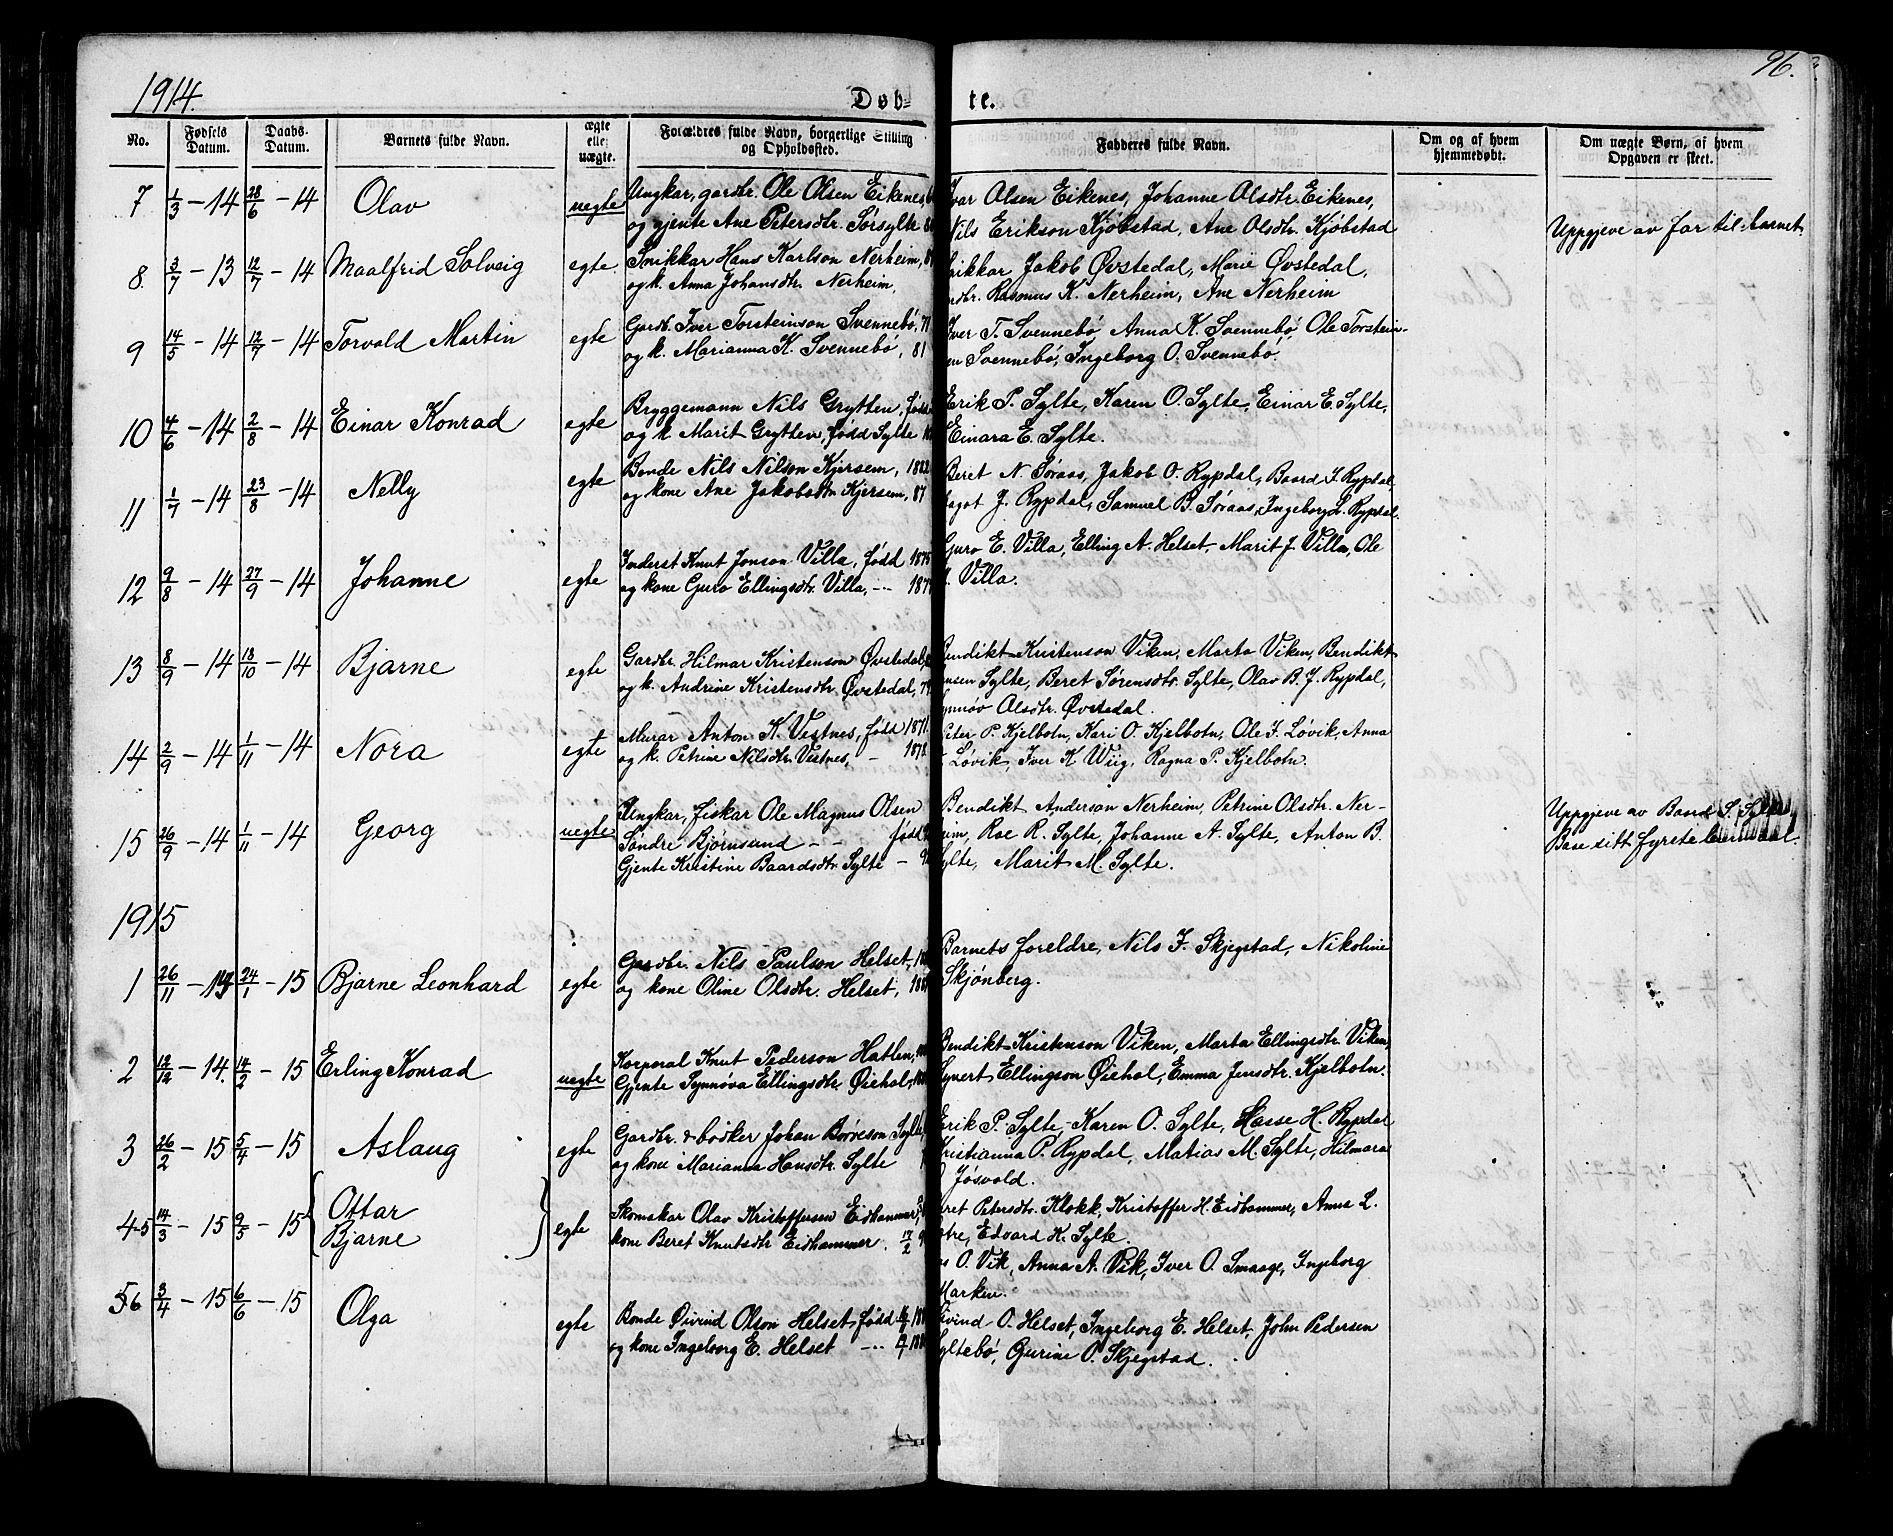 1914.
96.
Døb-
te.
No.
Fødsels Datum.
Daabs- Datum.
Barnets fulde Navn.
ægte eller uægte.
Forældres fulde Navn, borgerlige Stilling og Opholdssted.
Fadderes fulde Navn.
Om og af hvem hjemmedøbt.
Om uægte Børn, af hvem Opgaven er skeet.
7 1/3 - 14 28/6 - 14 Olav uegte Ungkar, gardbr. Ole Olsen Eikenes, Ivar Olsen Eikenes, Johanne Olsdtr. Eikenes,
og gjente Ane Petersdtr. Sørsylte Nils Erikson Kjøbstad, Ane Olsdtr. Kjøbstad Uppgjeve av far til barnet.
8. 3/7 - 13 12/7 - 14 Maalfrid Solveig egte. Snikkar Hans Karlson Nerheim, Jakob Øvstedal, Marie Øvstedal,
og k. Anna Johansdtr. Nerheim, Rasmus K. Nerheim, Ane Nerheim
9 14/5 - 14 12/7 - 14 Torvald Martin egte Gardb. Iver Torsteinson Svennebø, Iver T. Svennebø, Anna K. Svennebø, Ole Torstein-
og k. Marianna K. Svennebø, 81 en Svennebø, Ingeborg O. Svennebø.
10 4/6 - 14 2/8 - 14 Einar Konrad egte Bryggemann Nils Grytten, fødd Erik P. Sylte, Karen O. Sylte, Einar E. Sylte,
og k Marit Grytten, fødd Sylte Einara E. Sylte.
11 1/7 - 14 23/8 - 14 Nelly egte Bonde Nils Nilson Kjersem, 1882 Beret N. Søraas, Jakob O. Rypdal, Baard J. Rypdal,
og kone Ane Jakobsdtr. Kjersem, 87 J. Rypdal, Samuel B. Søraas, Ingeborg L. Rypdal.
12 9/8 - 14 27/9 - 14 Johanne egte Inderst Knut Jonson Villa, fødd 1875 Guro E. Villa, Elling A. Helset, Marit J. Villa, Ole
og kone Guro Ellingsdtr. Villa, -- 187 Villa.
13 8/9 - 14 18/10 - 14 Bjarne egte Gardbr. Hilmar Kristenson Øvstedal, Bendikt Kristenson Viken, Marta Viken, Bendikt
og k. Andrine Kristensdtr. Øvstedal, Sylte, Beret Sørensdtr. Sylte, Olav B. J. Rypdal,
Olsdtr. Øvstedal.
14 2/9 - 14 1/11 - 14 Nora egte Murar Anton K. Vestnes, fødd 1871. Peter P. Kjelbotn, Kari O. Kjelbotn, Ole I. Løvik, Anna
og k. Petrine Nilsdtr. Vestnes, - 1878. Løvik, Iver K Wiig, Ragna P. Kjelbotn.
15 26/9 - 14 1/11 - 14 Georg uegte Ungkar, fiskar Ole Magnus Olsen Bendikt Anderson Nerheim, Petrine Olsdtr. Ner-
Søndre Bjørnsund -- fødd Roe R. Sylte, Johanne A. Sylte, Anton B. Uppgjeve av Baard S. Sylte
Gjente Kristine Baardsdtr. Sylte - Sylte, Marit M. Sylte. sitt fyrste
1915
1 26/11 - 24/1 - 15 Bjarne Leonhard egte Gardbr. Nils Paulson Helset, Barnets foreldre, Nils I. Skjegstad, Nikoline
og kone Oline Olsdtr. Helset, Skjønberg.
2 12/12 - 14. 14/2 - 15 Erling Konrad uegte Korporal Knut Pederson Hatlen, Bendikt Kristenson Viken, Marta Ellingsdtr. Viken,
Gjente Synnøva Ellingsdtr. Øiehol, Synert Ellingson Øiehol, Emma Jensdtr. Kjelbotn.
3 26/2 - 15 5/4 - 15 Aslaug egte Gardbr. & bødker Johan Børreson Sylte, Erik P. Sylte, Karen O. Sylte, Lasse H. Rypdal
og kone Marianna Hansdtr. Sylte Kristianna P. Rypdal, Matias M. Sylte, Hilmara
Jøsvold.
4-5 14/3 - 15 9/5 - 15 Ottar egte Skomakar Olav Kristoffersen Eidhammer, Petersdtr. Klokk, Kristoffer H. Eidhammer, Anne L.
Bjarne kone Beret Knutsdtr Eidhammer. Edvard K. Sylte.
O. Vik, Anna A. Vik, Iver O. Smaage, Ingeborg
Marken.
6 3/4 - 15 6/6 - 15 Olga egte Bonde Øivind Olson Helset, fødd Eivind O. Helset, Ingeborg E. Helset, John Pedersen
og kone Ingeborg E. Helset -- Syltebø, Gurine O. Skjegstad.